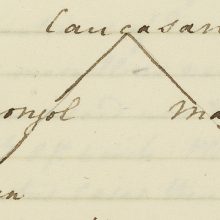 Caucasan
ongol Ma
an